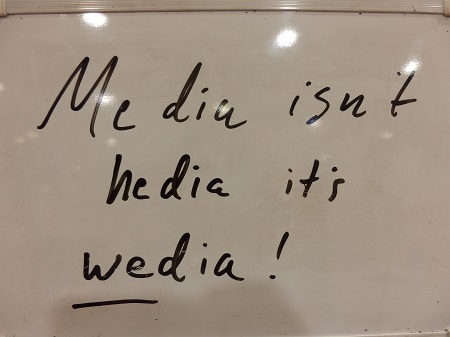 Media isn't
hedia it's
wedia!